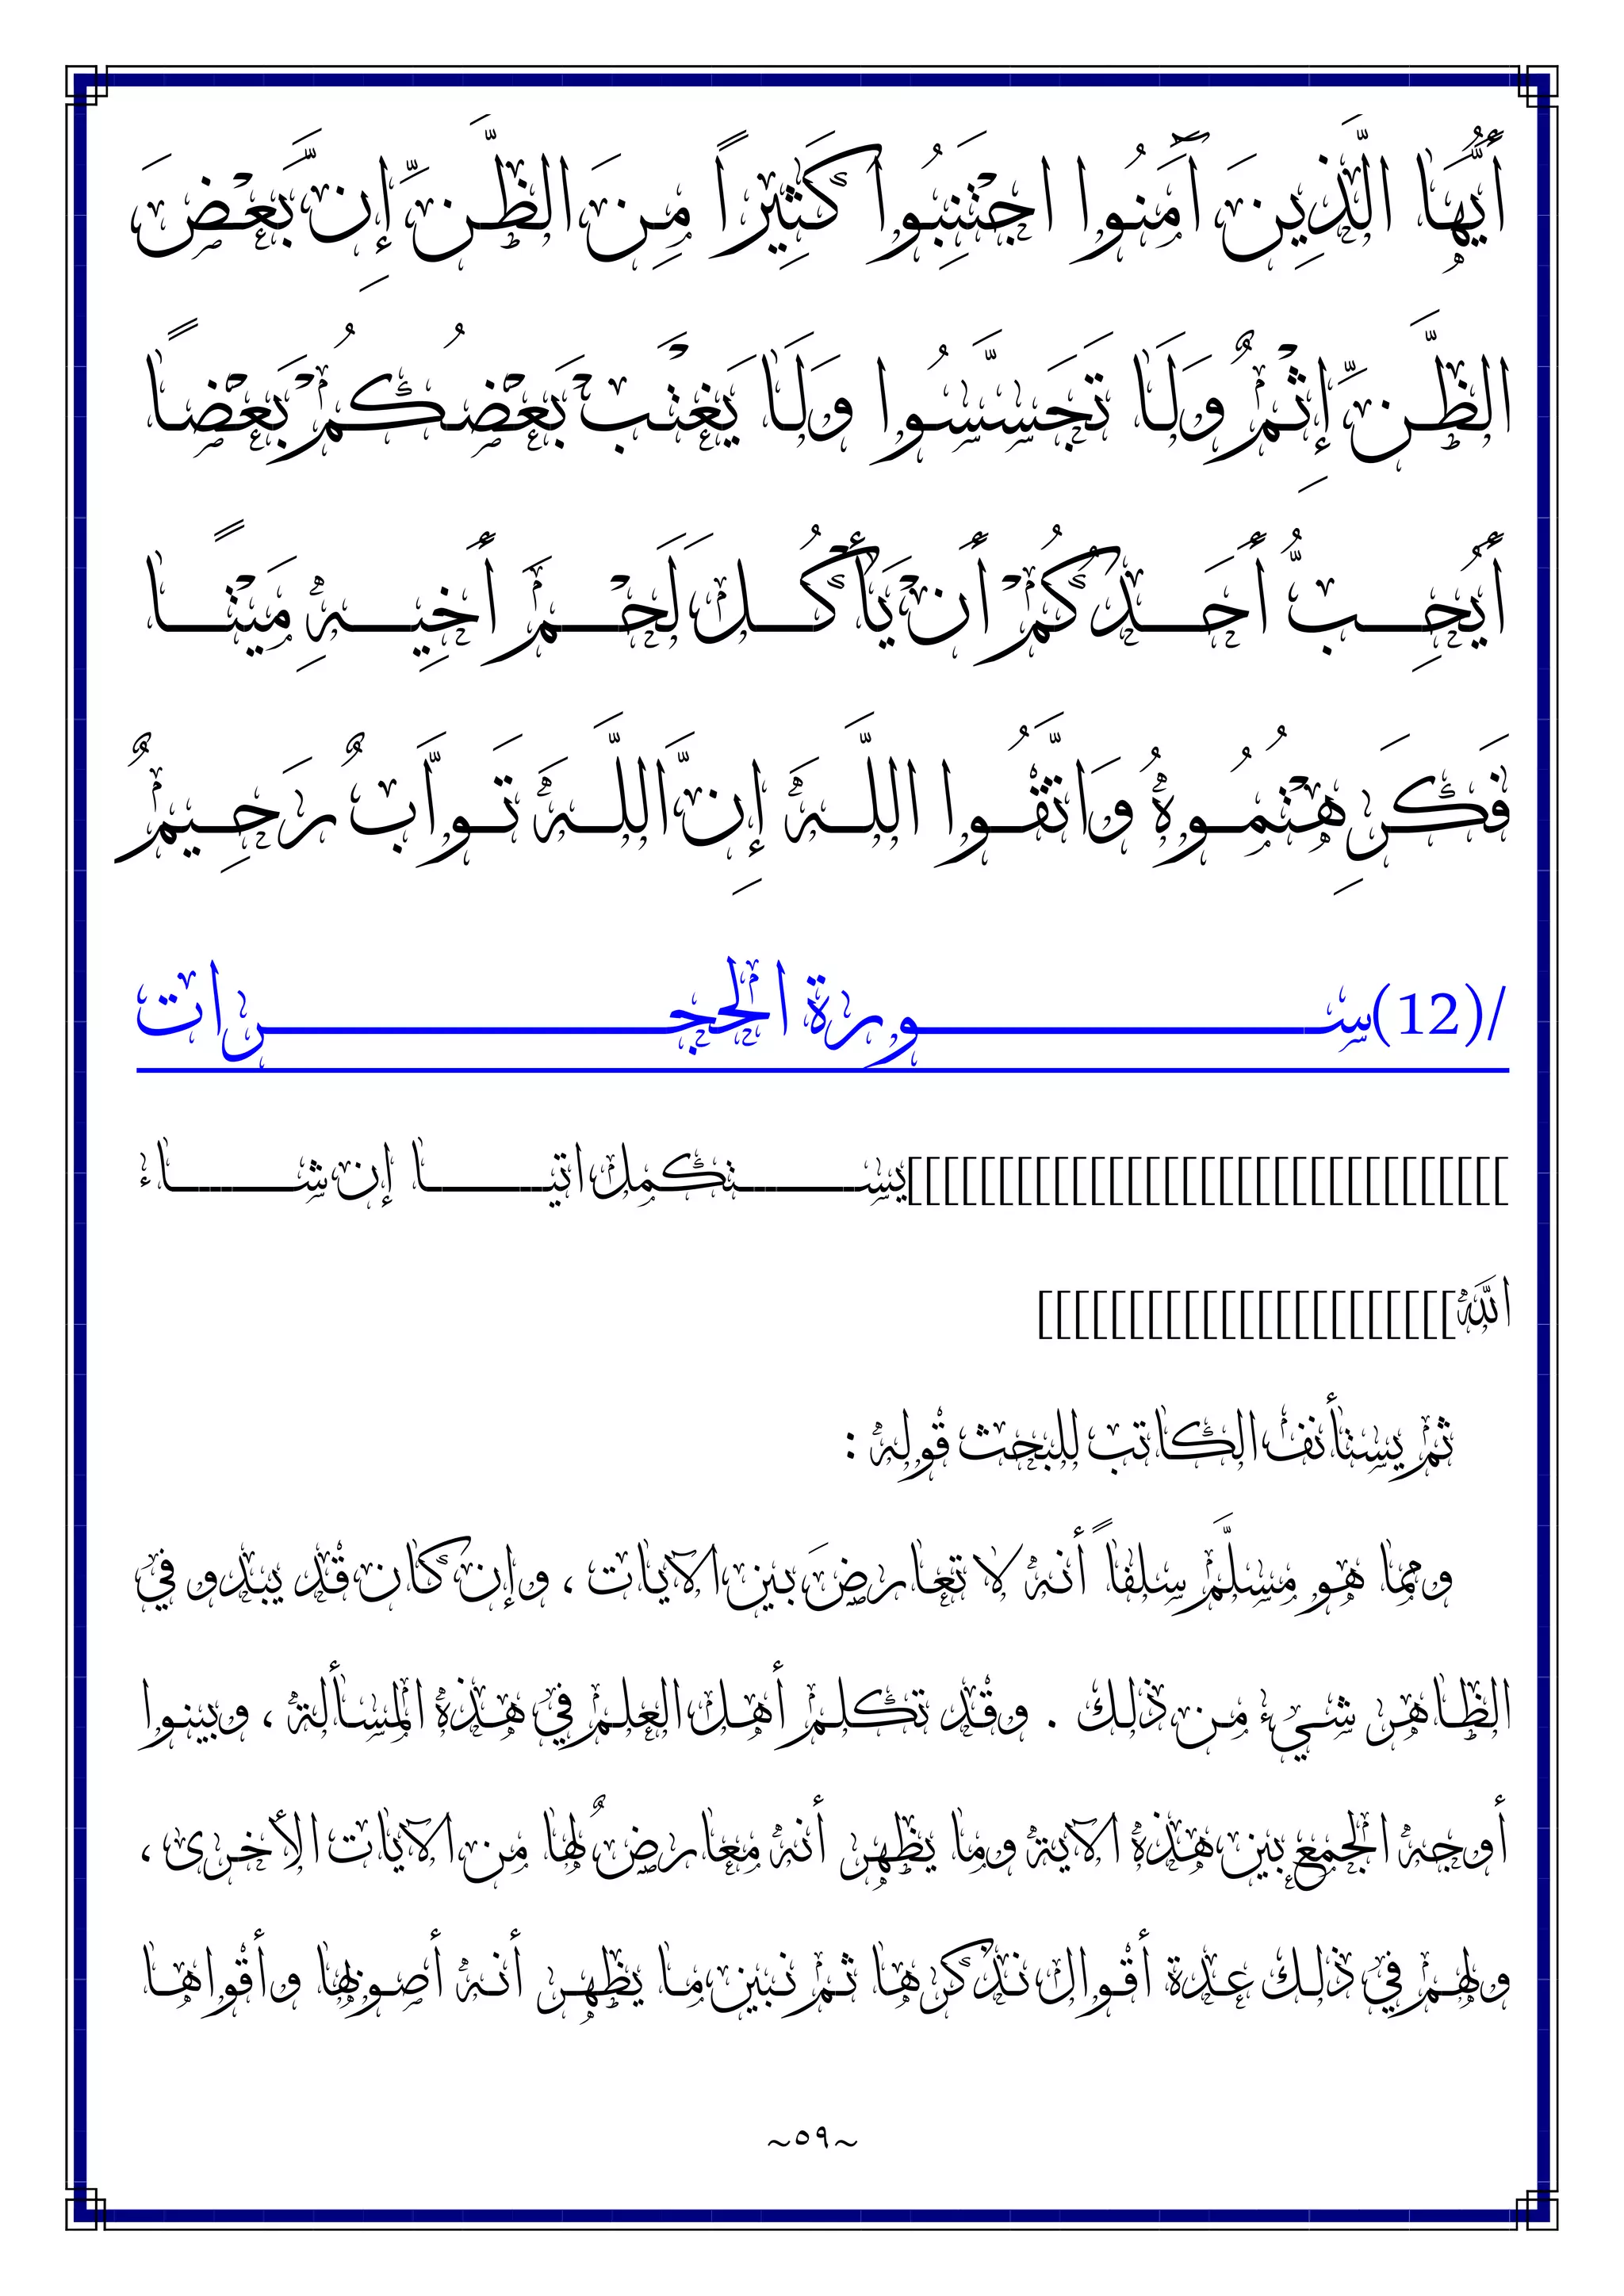 أَيُّهَا الَّذِينَ آَمَنُوا اجْتَنِبُوا كَثِيرًا مِنَ الظَّنِّ إِنَّ بَعْضَ
الظَّنِّ إِثْمٌ وَلَا تَجَسَّسُوا وَلَا يَغْتَبْ بَعْضُكُمْ بَعْضًا
أَيُحِبُّ أَحَدُكُمْ أَنْ يَأْكُلَ لَحْمَ أَخِيهِ مَيْتًا
فَكَرِهْتُمُوهُ وَاتَّقُوا اللَّهَ إِنَّ اللَّهَ تَوَّابٌ رَحِيمٌ
/(12)سورة الحجرات
[[[[[[[[[[[[[[[[[[[[[[[[[[[[[[[[يستكمل اتيا إن شاء
الله]]]]]]]]]]]]]]]]]]]]]]]
ثم يستأنف الكاتب للبحث قوله :
ومما هو مسلَّم سلفاً أنه لا تعارضَ بين الآيات ، وإن كان قد يبدو في
الظاهر شيء من ذلك . وقد تكلم أهل العلم في هذه المسألة ، وبينوا
أوجه الجمع بين هذه الآية وما يظهر أنه معارضٌ لها من الآيات الأخرى ،
ولهم في ذلك عدة أقوال نذكرها ثم نبين ما يظهر أنه أصوبها وأقواها
~٥٩~